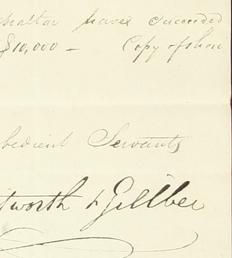 have succeeded
$10,000 – Copy of
bedient Servants
tworth & Gillbee